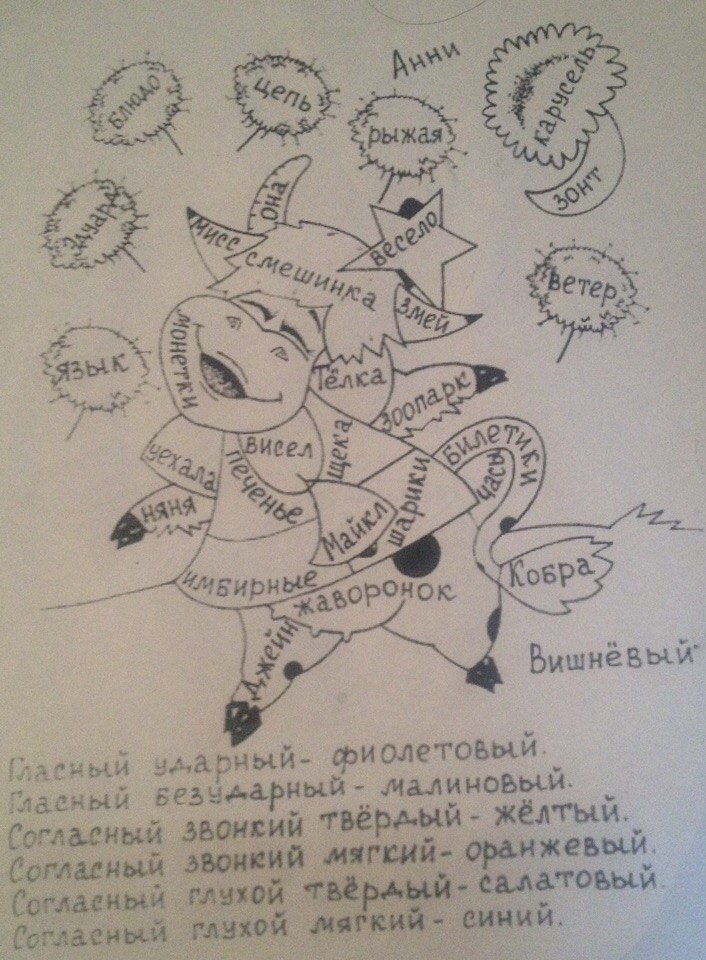 Анни
карусель
блюдо
цепь
рыжая
зонт
Эдуард
она
мисс
весело
смешинка
ветер
змей
монетки
язык
Тёлка
зоопарк
билетики
уехала
висел
щека
печенье
часы
шарики
няня
Майкл
имбирные
жаворонок
Кобра
Джейн
Вишнёвый
Гласный ударный- фиолетовый.
Гласный безударный- малиновый.
Согласный звонкий твёрдый- жёлтый.
Согласный звонкий мягкий- оранжевый.
Согласный глухой твёрдый- салатовый.
Согласный глухой мягкий- синий.